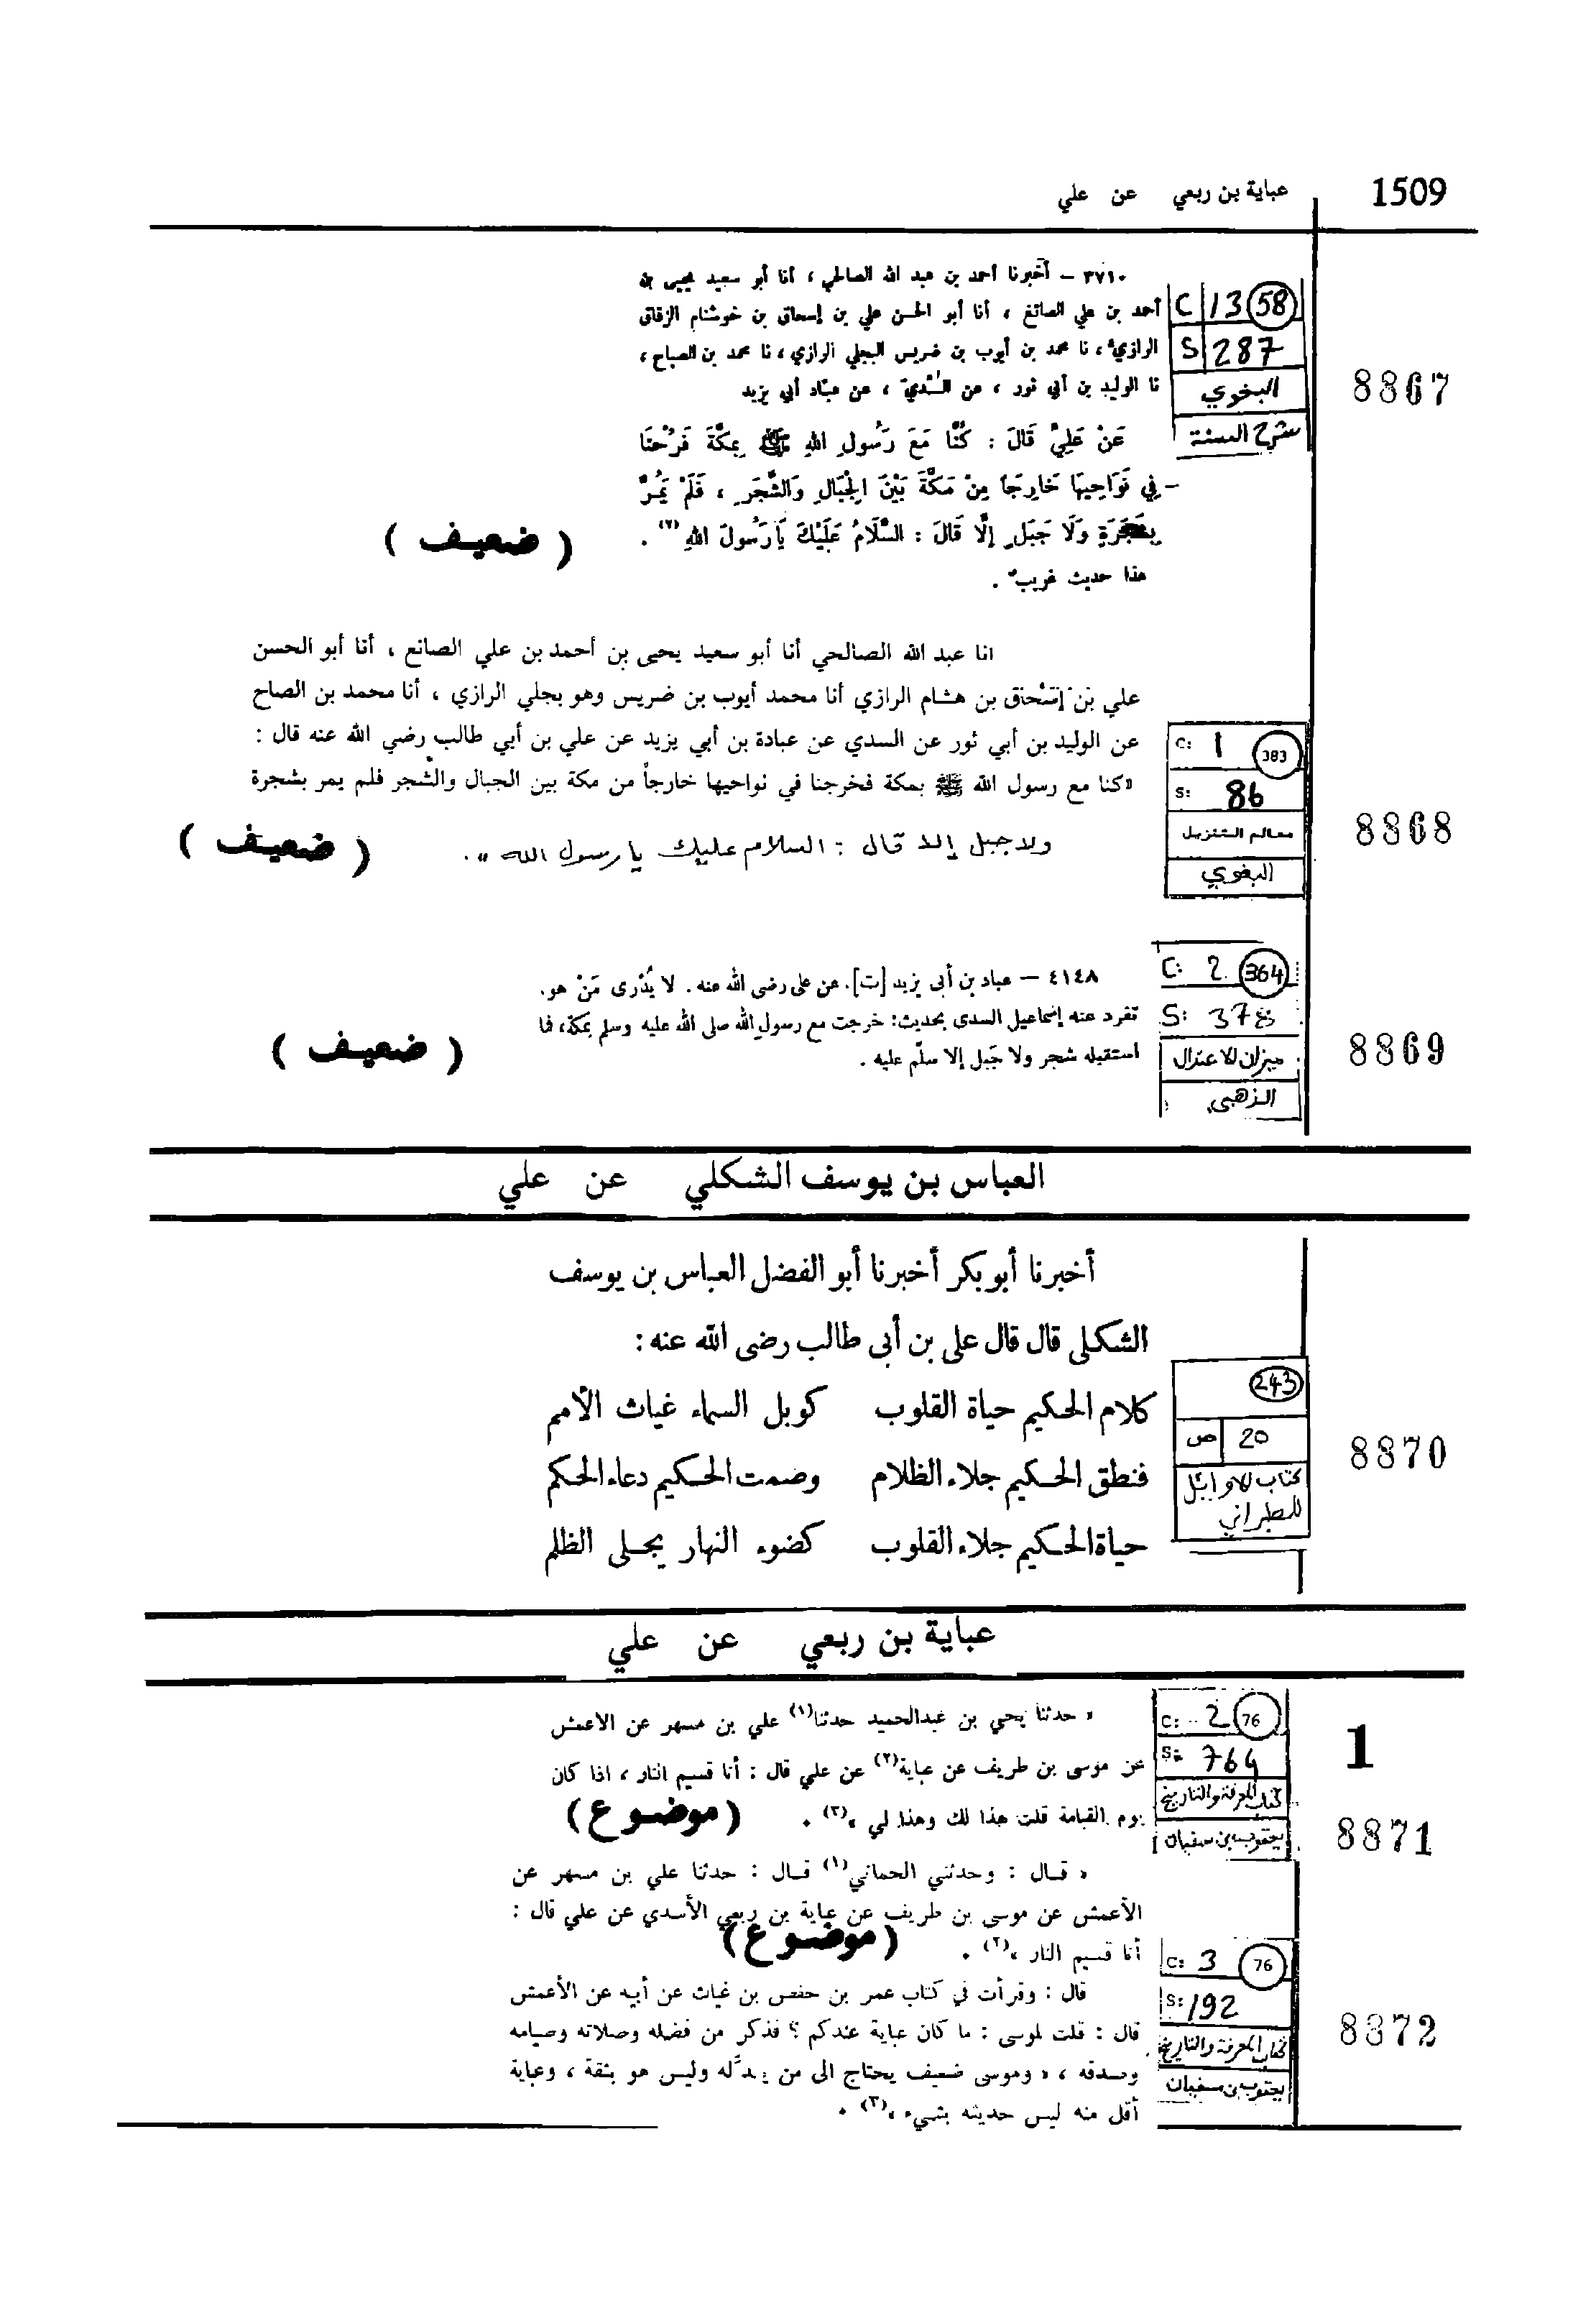 1509
عباية بن ربعي عن علي
٣٧١٠ – أخبرنا أحمد بن عبد الله الصالحي ، أنا أبو سعيد يحيى بن
أحمد بن علي الصائغ ، أنا أبو الحسن علي بن إسحاق بن خوشنام الزقاق
الرازي ، نا محمد بن أيوب بن ضريس البجلي الرازي ، نا محمد بن الصباح ،
نا الوليد بن أبي ثور ، عن السُّديّ ، عن عبّاد أبي يزيد
عَنْ عَلِيٍّ قَالَ : كُنَّا مَعَ رَسُولِ اللهِ ﷺ بِمَكَّةَ فَرُحْنَا
– فِي نَوَاحِيهَا خَارِجَاً مِنْ مَكَّةَ بَيْنَ الْجِبَالِ وَالشَّجَرِ ، فَلَمْ يَمُرَّ
بِشَجَرَةٍ وَلَا جَبَلٍ إِلَّا قَالَ : السَّلَامُ عَلَيْكَ يَا رَسُولَ اللهِ (٢) .
هذا حديث غريب .
( ضعيف )
C 13 58
S 287
البغوي
شرح السنة
8867
انا عبد الله الصالحي أنا أبو سعيد يحيى بن أحمد بن علي الصانع ، أنا أبو الحسن
علي بن إسْحاق بن هشام الرازي أنا محمد أيوب بن ضريس وهو بجلي الرازي ، أنا محمد بن الصاح
عن الوليد بن أبي ثور عن السدي عن عبادة بن أبي يزيد عن علي بن أبي طالب رضي الله عنه قال :
«كنا مع رسول الله ﷺ بمكة فخرجنا في نواحيها خارجاً من مكة بين الجبال والشجر فلم يمر بشجرة
ولا جبل إلا قال : السلام عليك يا رسول الله » .
( ضعيف )
C: 1 383
S: 86
معالم التنزيل
البغوي
8868
٤١٤٨ – عباد بن أبى يزيد [ت]. عن على رضى الله عنه . لا يُدْرى مَنْ هو.
تفرد عنه إسماعيل السدى بحديث: خرجت مع رسول الله صلى الله عليه وسلم بمكة، فما
استقبله شجر ولا جَبل إلا سلّم عليه .
( ضعيف )
C: 2 364
S: 378
ميزان الاعتدال
الذهبي
8869
العباس بن يوسف الشكلي عن علي
أخبرنا أبو بكر أخبرنا أبو الفضل العباس بن يوسف
الشكلى قال قال على بن أبى طالب رضى الله عنه :
كلام الحكيم حياة القلوب كوبل السماء غياث الأمم
فنطق الحكيم جلاء الظلام وصمت الحكيم دعاء الحكم
حياة الحكيم جلاء القلوب كضوء النهار يجلى الظلم
243
ص 20
كتاب الاوائل
للطبراني
8870
عباية بن ربعي عن علي
« حدثنا يحي بن عبدالحميد حدثنا(١) علي بن مسهر عن الاعمش
عن موسى بن طريف عن عباية(٢) عن علي قال : أنا قسيم النار ، اذا كان
يوم القيامة قلت هذا لك وهذا لي »(٣) .
(موضوع)
C: 2 76
S: 764
كتاب المعرفة والتاريخ
يعقوب بن سفيان
1
8871
« قال : وحدثني الحماني(١) قال : حدثنا علي بن مسهر عن
الأعمش عن موسى بن طريف عن عباية بن ربعي الأسدي عن علي قال :
أنا قسيم النار »(٢) .
(موضوع)
قال : وقرأت في كتاب عمر بن حفص بن غياث عن أبيه عن الأعمش
قال : قلت لموسى : ما كان عباية عندكم ؟ فذكر من فضله وصلاته وصيامه
وصدقه ، « وموسى ضعيف يحتاج الى من يعدّله وليس هو بثقة ، وعباية
أقل منه ليس حديثه بشيء »(٣) .
C: 3 76
S: 192
كتاب المعرفة والتاريخ
يعقوب بن سفيان
8872